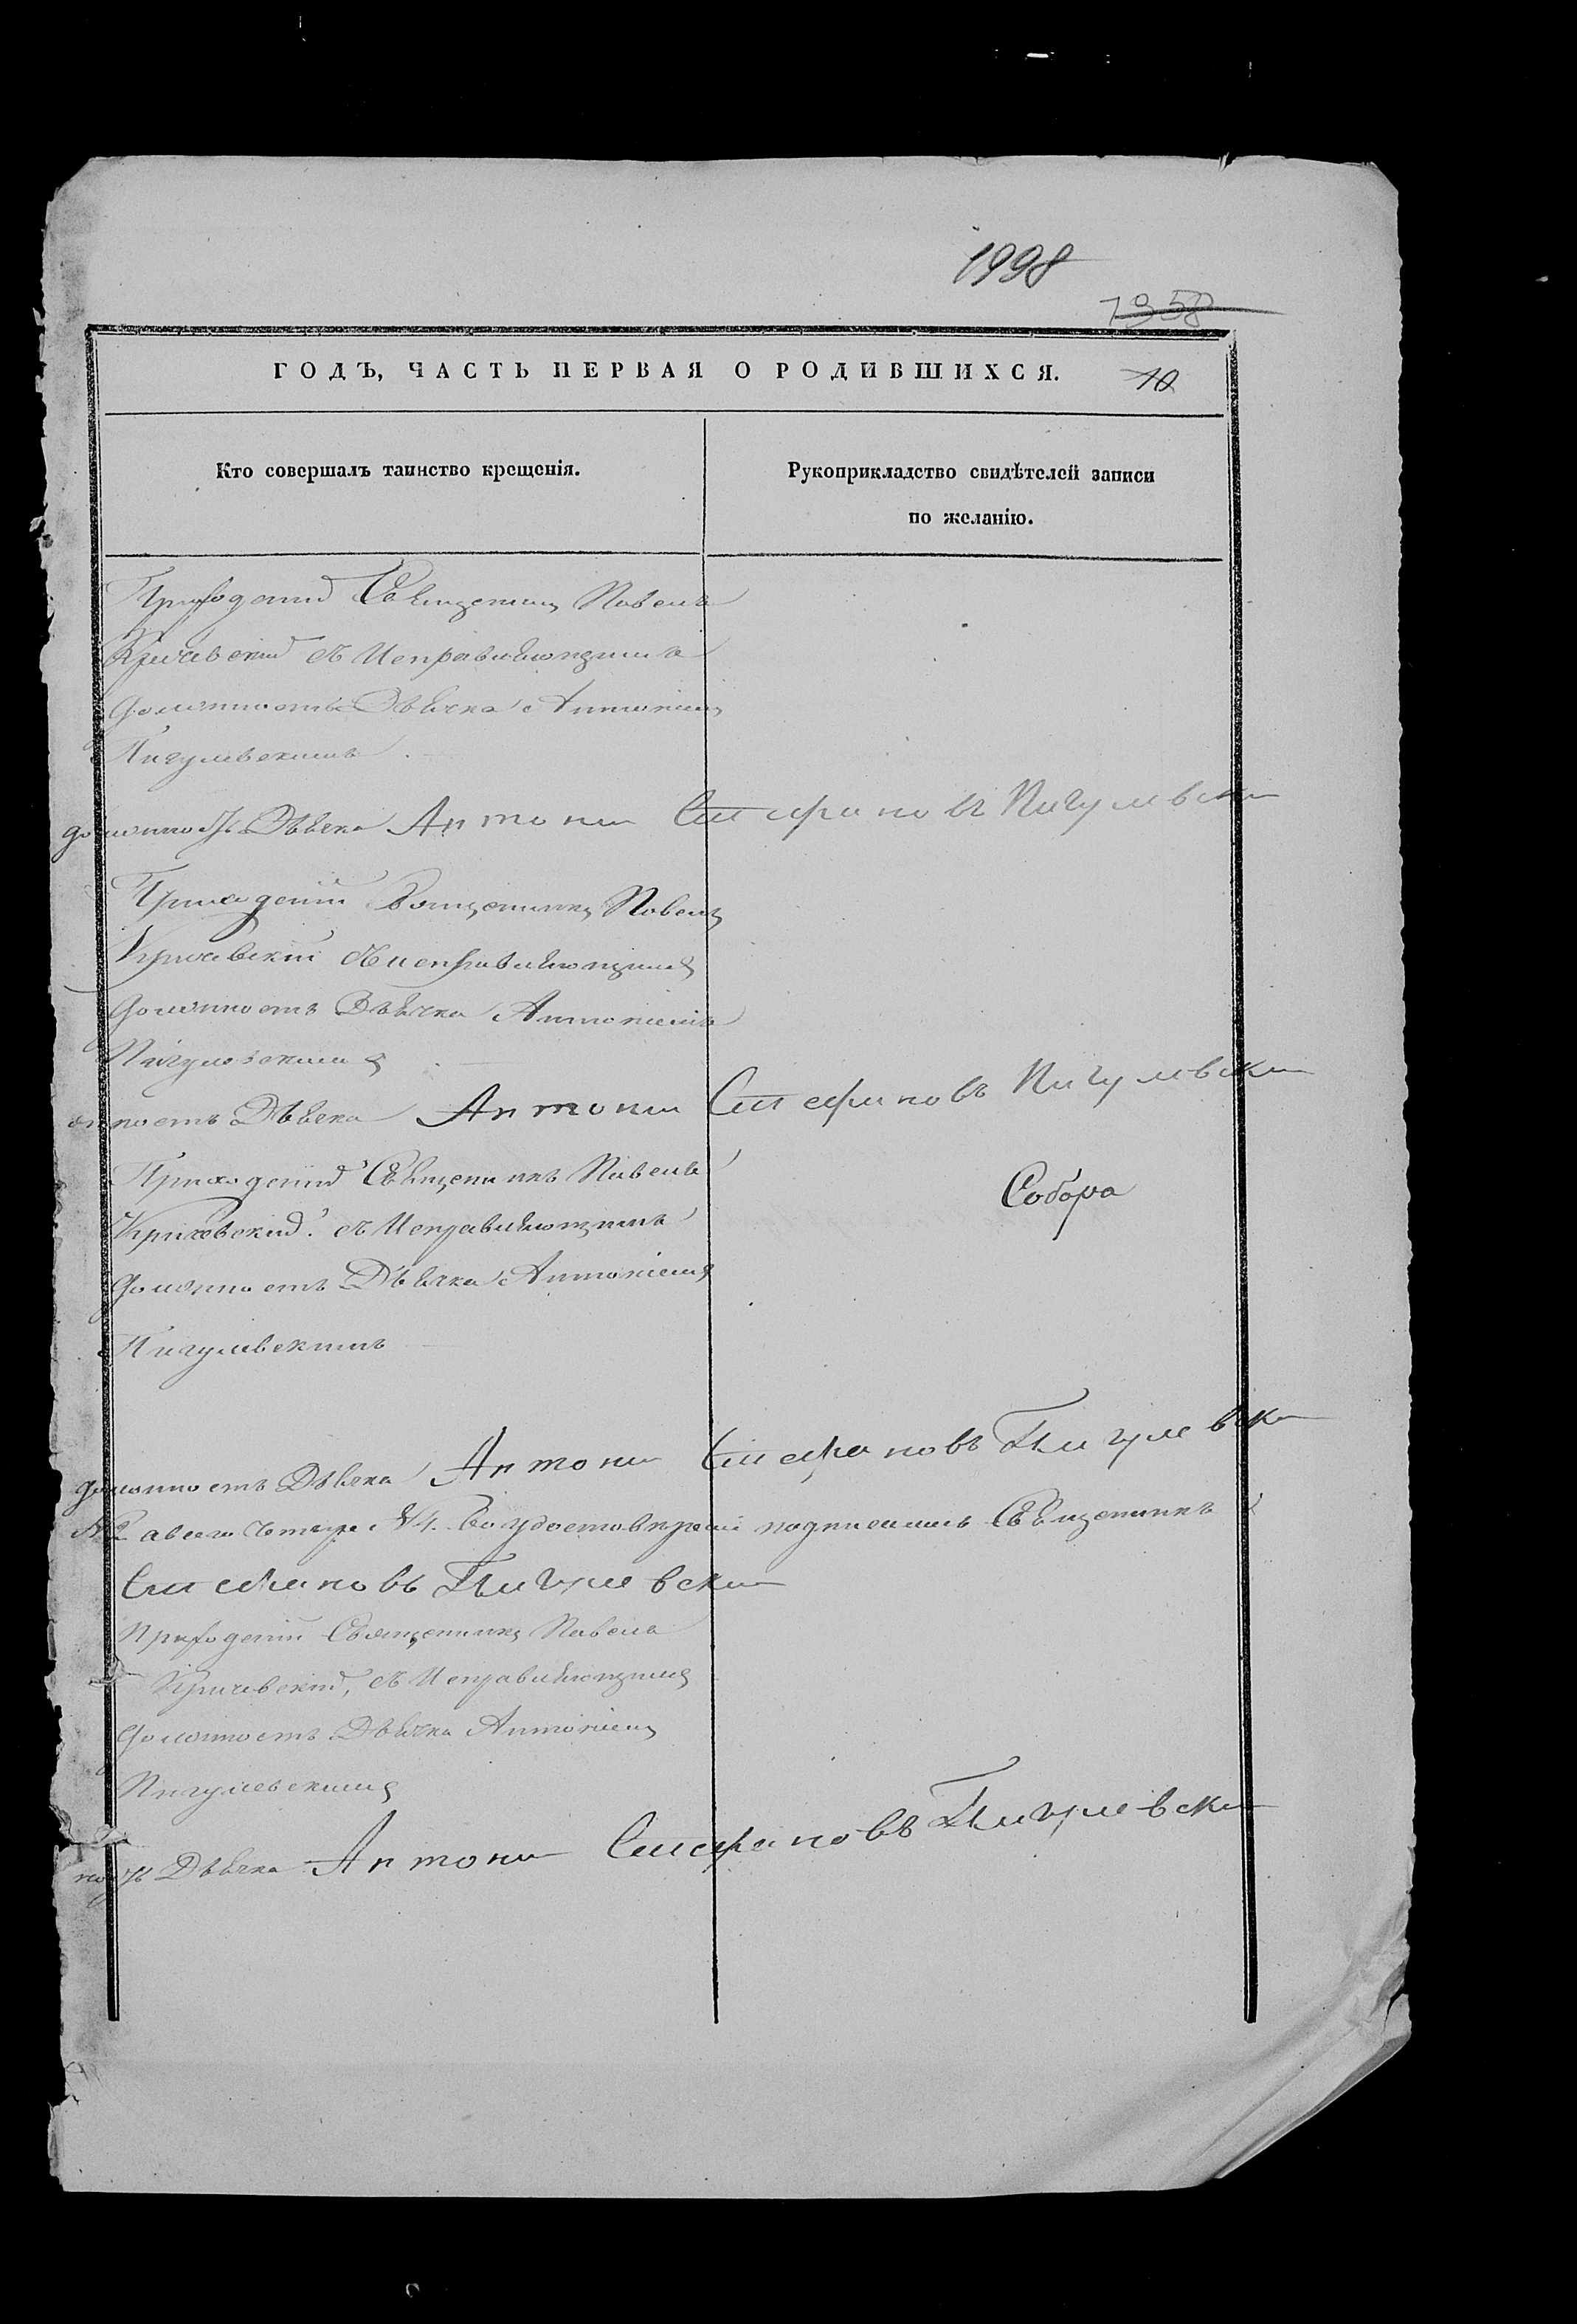 1998
1958
ГОДЪ, ЧАСТЬ ПЕРВАЯ О РОДИВШИХСЯ.
10
Кто совершалъ таинство крещенія.
Рукоприкладство свидѣтелей записи
по желанію.
Приходскій Священникъ Павелъ
Кричевскій съ Исправляющимъ
должность Дьячка Антоніемъ
Пигулевскимъ.
должность Дьячка Антони Стефановъ Пигулевски
Приходскій Священникъ Павелъ
Кричевскій съ исправляющимъ
должность Дьячка Антоніемъ
Пигулевскимъ
должность Дьячка Антони Стефановъ Пигулевски
Приходскій Священникъ Павелъ
Собора
Кричевскій съ Исправляющимъ
должность Дьячка Антоніемъ
Пигулевскимъ
должность Дьячка Антони Стефановъ Пигулевски
2 а всего четыре 4. Въ удостовѣреніи подписались Священникъ
Стефановъ Пигулевски
Приходскій Священникъ Павелъ
Кричевскій, съ Исправляющимъ
должность Дьячка Антоніемъ
Пигулевскимъ
Дьячка Антони Стефановъ Пигулевски